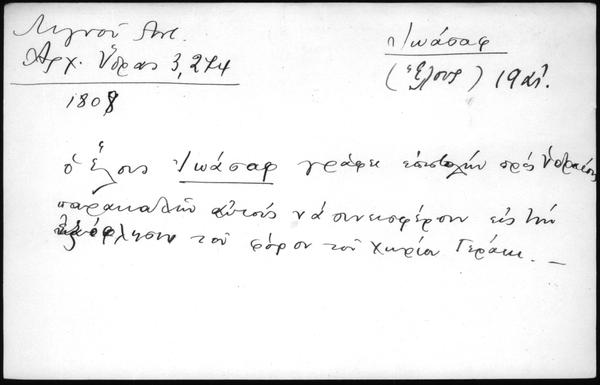 Λιγνού Αντ.
Αρχ. Ύδρας 3,274
1808
Ἰωάσαφ
(Ἕλους) 19 αἰ.
ὁ Ἕλους Ἰωάσαφ γράφει ἐπιστολήν πρός Ὑδραίους
παρακαλῶν αὐτούς νά συνεισφέρουν εἰς τήν
ἐξόφλησιν τοῦ φόρου τοῦ χωρίου Γεράκι. —